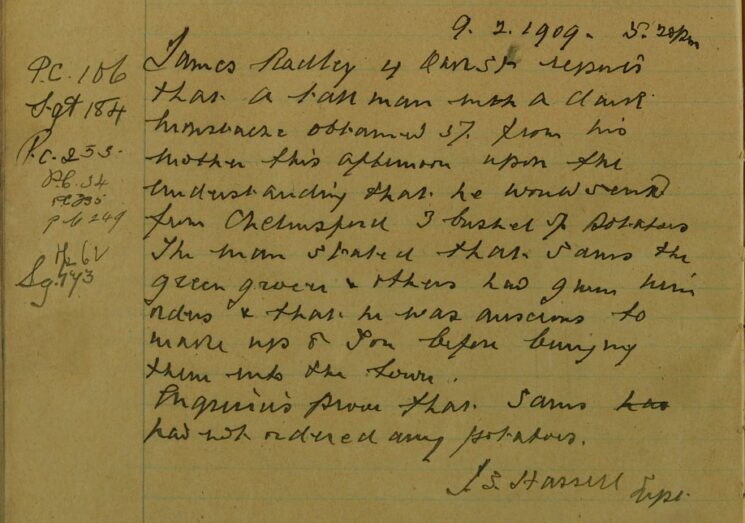 9. 2. 1909. 5. 20pm
P.C. 106
Sgt 184
P.C. 233.
P.C. 34
P.C. 249
Sg. 143
James Radley of reports
that a tall man with a dark
moustache obtained 5/. from his
mother this afternoon upon the
understanding that he would send
from Chelmsford 3 bushel of potatoes
The man stated that Sams the
green grocer & others had given him
orders & that he was anxious to
make up 8 Ton before bringing
them into the town.
Enquiries prove that Sams has
had not ordered any potatoes.
J. S. Hassell Supt.